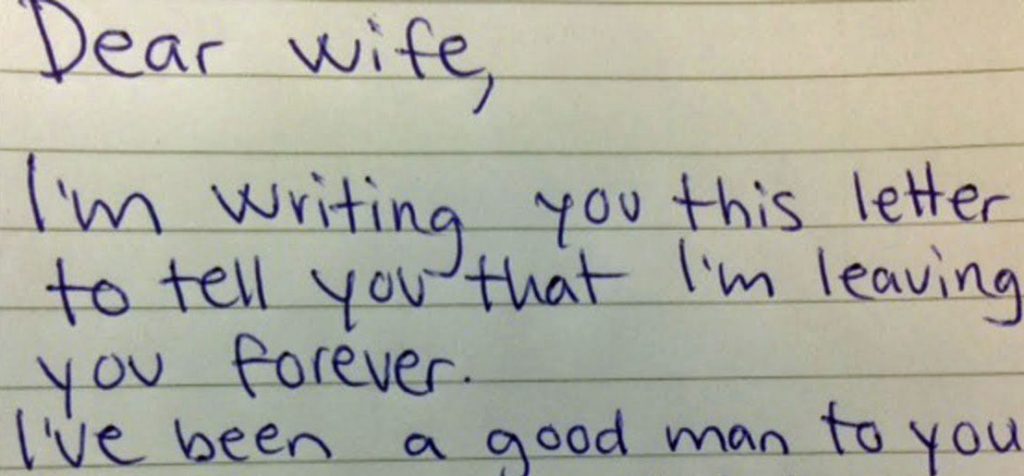 Dear wife,
I'm writing you this letter
to tell you that I'm leaving
you forever.
I've been a good man to you